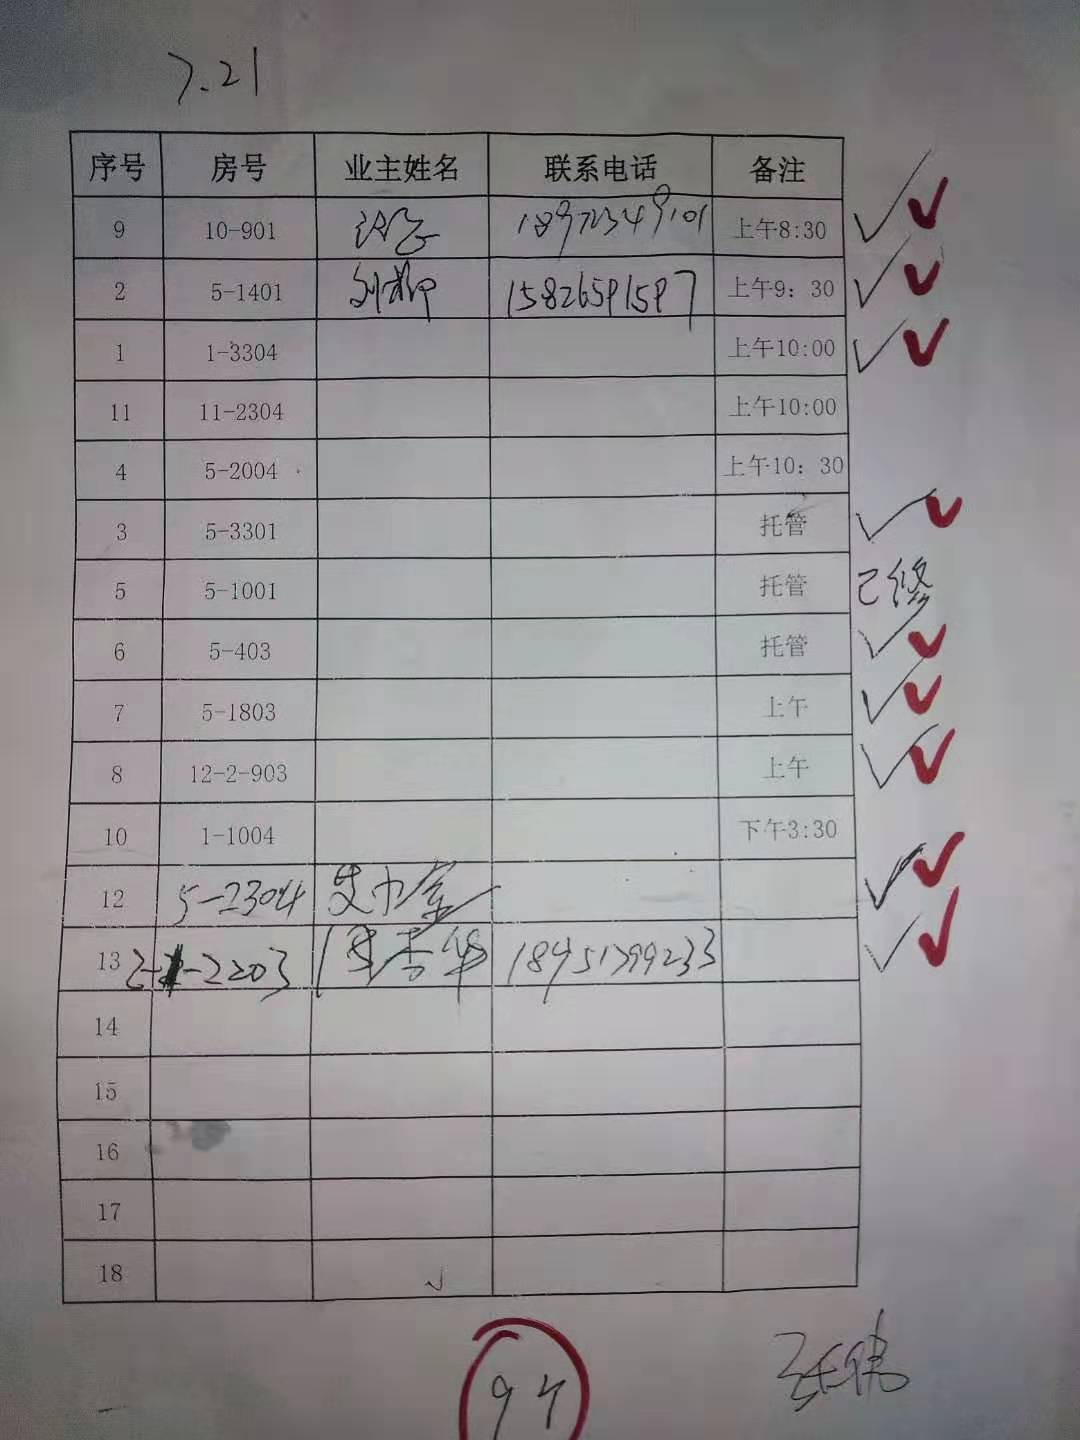 7.21
序号 房号 业主姓名 联系电话 备注
9 10-901 18972349101 上午8:30
2 5-1401 刘柳 15826591597 上午9：30
1 1-3304 上午10:00
11 11-2304 上午10:00
4 5-2004 上午10：30
3 5-3301 托管
5 5-1001 托管 已修
6 5-403 托管
7 5-1803 上午
8 12-2-903 上午
10 1-1004 下午3:30
12 5-2304
13 2203 18451799233
14
15
16
17
18
9个
张伟